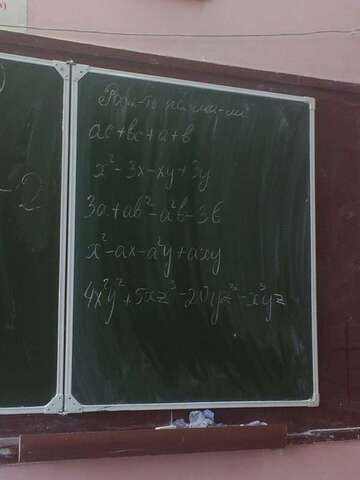 Разл-ть на мн-ли
ac+bc+a+b
x²-3x-xy+3y
3a+ab²-a²b-3b
x²-ax-a²y+axy
4x²y²+5xz³-20yz²-x³yz
-2